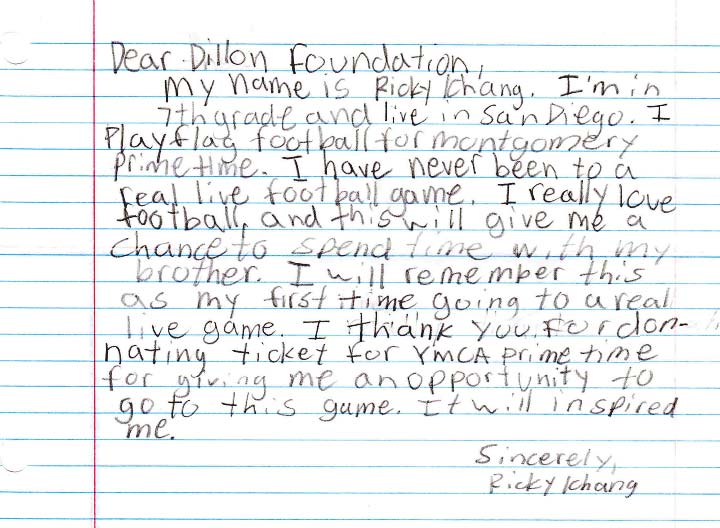 Dear Dillon Foundation,
My name is Ricky Ichang. I'm in
7th grade and live in San Diego. I
Play flag football for montgomery
prime time. I have never been to a
real live football game. I really love
football, and this will give me a
chance to spend time with my
brother. I will remember this
as my first time going to a real
live game. I thank you for don-
nating ticket for YMCA prime time
for giving me an opportunity to
go to this game. It will inspired
me.
Sincerely,
Ricky Ichang